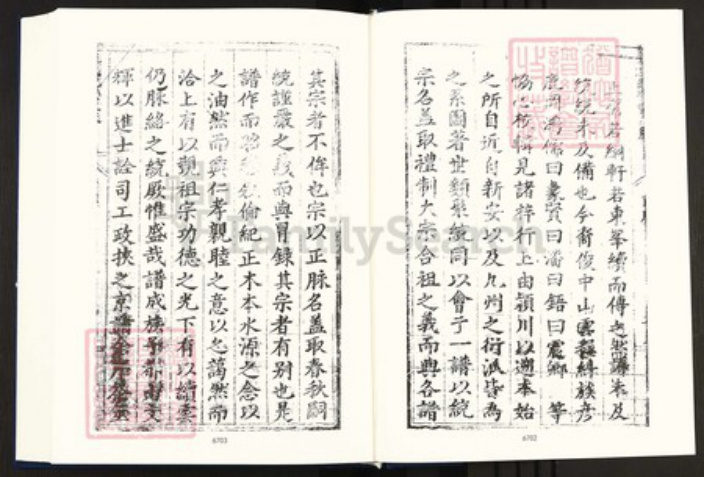 軒若東峯續而傳之然譜未及
統未及備也今裔俊中山
曰彖賢曰潘曰鋙曰震鄉等
恊心校輯見諸梓行上由潁川以遡本始
之所自近自新安以及九州之衍派皆為
之系圖著世類聚統同以會于一譜以統
宗名盖取禮制大宗合祖之義而與各譜
其宗者不侔也宗以正脉名盖取春秋嗣
統謹嚴之義而與冒錄其宗者有别也是
譜作而昭倫紀正木本水源之念以
之油然而興仁孝親睦之意以之藹然而
洽上有以覲祖宗功德之光下有以續雲
仍脉絡之統厥惟盛哉譜成族
輝以進士詮司工政挾之京
6702
6703
FamilySearch